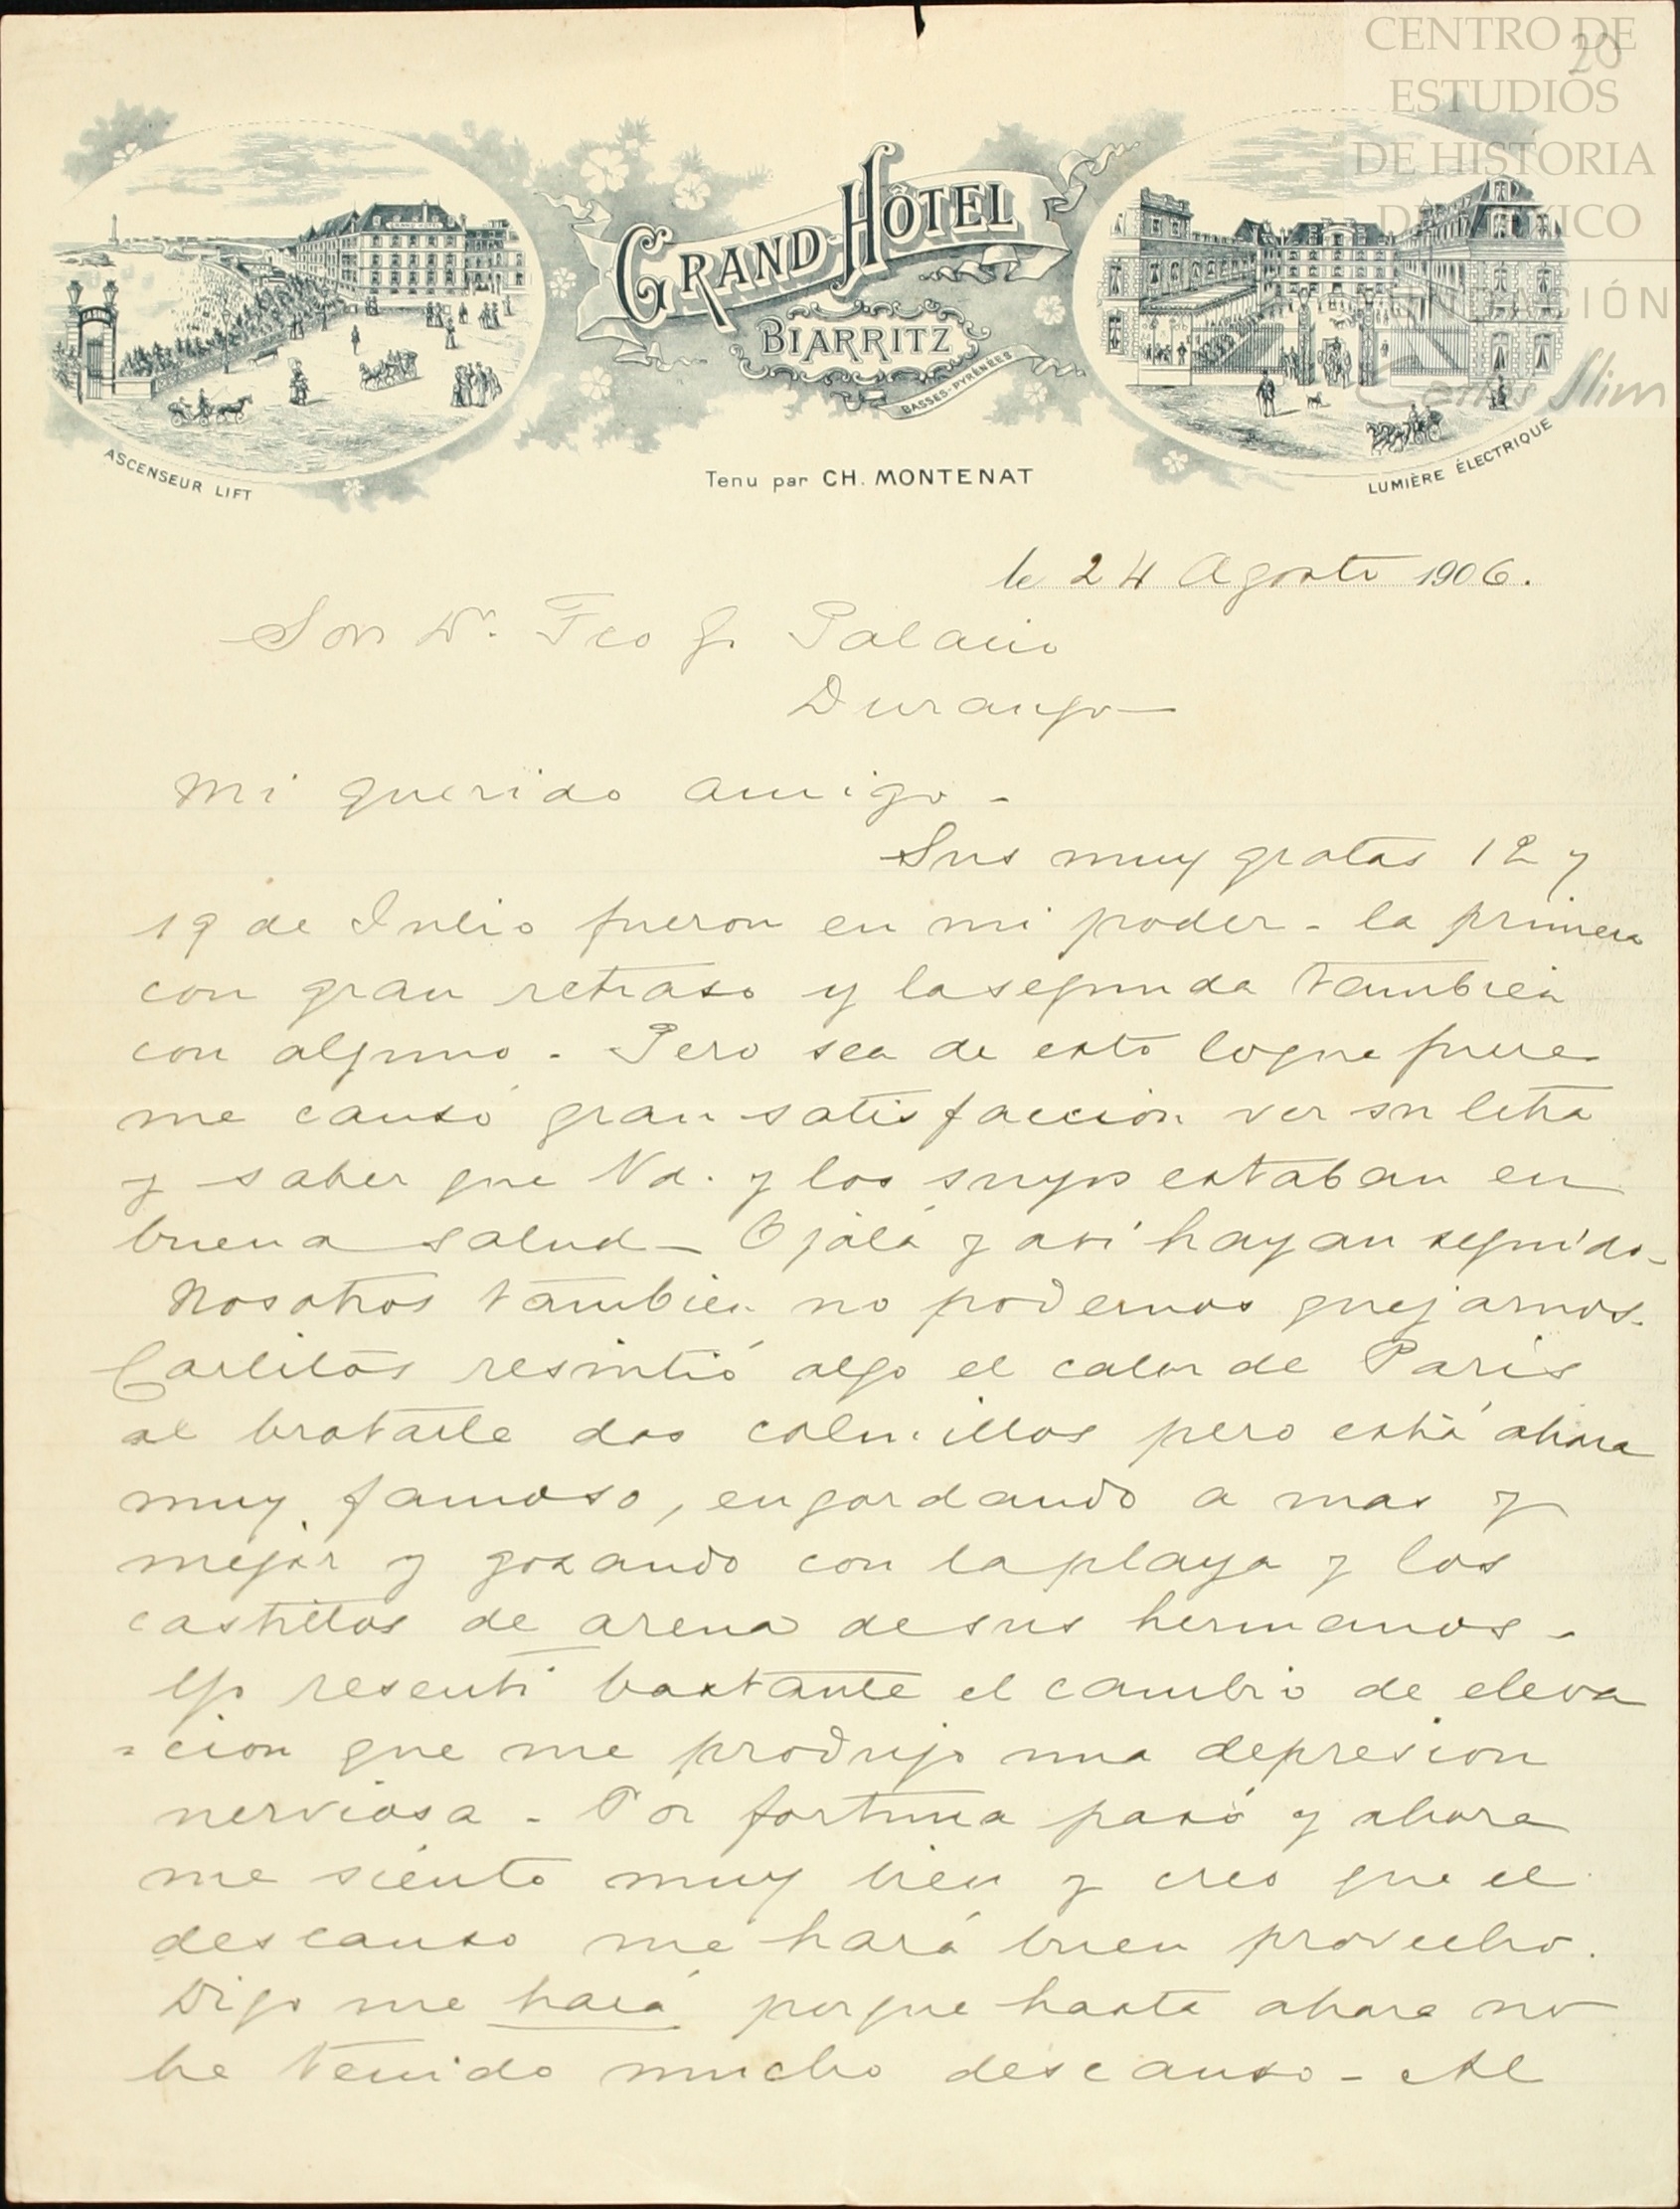 CENTRO DE
ESTUDIOS
DE HISTORIA
DE MÉXICO
FUNDACIÓN
Carlos Slim
20
GRAND HÔTEL
BIARRITZ
BASSES-PYRÉNÉES
GRAND HÔTEL
ASCENSEUR LIFT
LUMIÈRE ÉLECTRIQUE
Tenu par CH. MONTENAT
le 24 Agosto 1906.
Sor Dn. Fco G. Palacio
Durango
Mi querido amigo -
Sus muy gratas 12 y
19 de Julio fueron en mi poder - la primera
con gran retraso y la segunda tambien
con alguno - Pero sea de esto loque fuere
me causó gran satisfacción ver su letra
y saber que Vd. y los suyos estaban en
buena salud - Ojalá y así hayan seguido -
Nosotros tambien no podemos quejarnos.
Carlitos resintió algo el calor de Paris
al brotarle dos colmillos pero está ahora
muy famoso, engordando a mas y
mejor y gozando con la playa y los
castillos de arena de sus hermanos -
Yo resentí bastante el cambio de eleva
=cion que me produjo una depresion
nerviosa - Por fortuna pasó y ahora
me siento muy bien y creo que el
descanso me hará buen provecho.
Digo me hará porque hasta ahora no
he tenido mucho descanso - Al